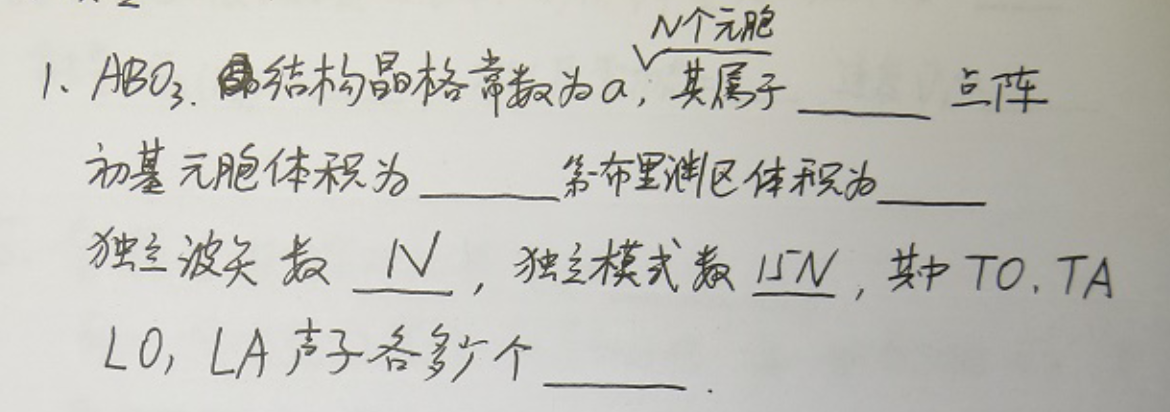 N个元胞
1、ABO₃. 结构晶格常数为a, 其属于______点阵
初基元胞体积为______第一布里渊区体积为______
独立波矢数 N , 独立模式数 15N , 其中TO、TA
LO, LA声子各多少个______.